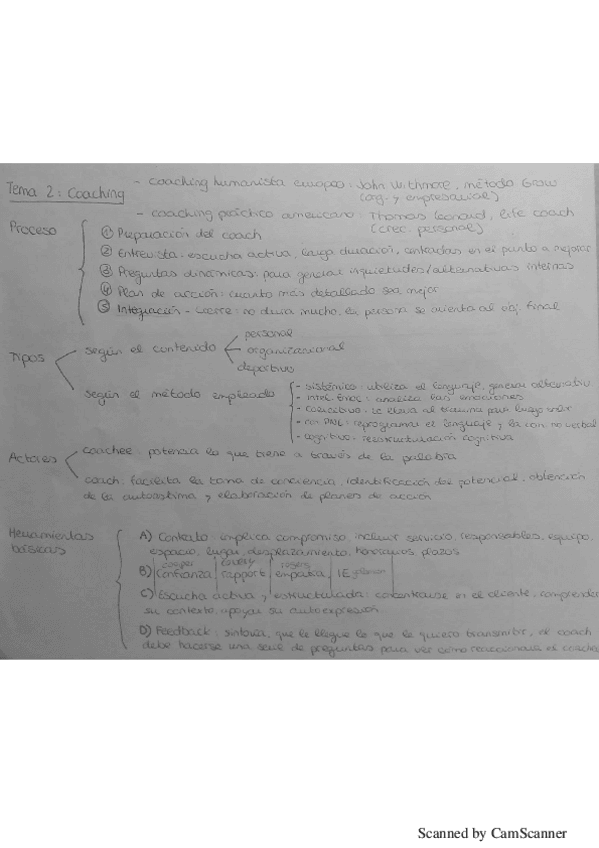 Tema 2: Coaching
- coaching humanista europeo: John Withmore, método Grow
(org. y empresarial)
- coaching práctico americano: Thomas Leonard, life coach
(crec. personal)
Proceso
① Preparación del coach
② Entrevista: escucha activa, larga duración, centradas en el punto a mejorar
③ Preguntas dinámicas: para generar inquietudes/alternativas internas
④ Plan de acción: cuanto más detallado sea mejor
⑤ Integración - cierre: no dura mucho, la persona se orienta al obj. final
Tipos
según el contenido
personal
organizacional
deportivo
según el método empleado
- sistémico: utiliza el lenguaje, generar
- Intel. Emoc: analiza las emociones
- coercitivo: le lleva al trauma para luego
- con PNL: reprogramar el lenguaje y la con no verbal
- cognitivo: reestructuración cognitiva
Actores
coachee: potencia lo que tiene a través de la palabra
coach: facilita la toma de conciencia, identificación del potencial, obtención
de la autoestima y elaboración de planes de acción
Herramientas
básicas
A) Contexto: implica compromiso, incluir servicio, responsables, equipo,
espacio, lugar, desplazamiento, honorarios, plazos
cooper rogers
B) Confianza rapport empatía IE goleman
C) Escucha activa y estructurada: concentrarse en el cliente, comprender
su contexto, apoyar su autoexpresión.
D) Feedback: sintonía, que le llegue lo que le quiero transmitir, el coach
debe hacerse una serie de preguntas para ver cómo reaccionaría el coachee
Scanned by CamScanner